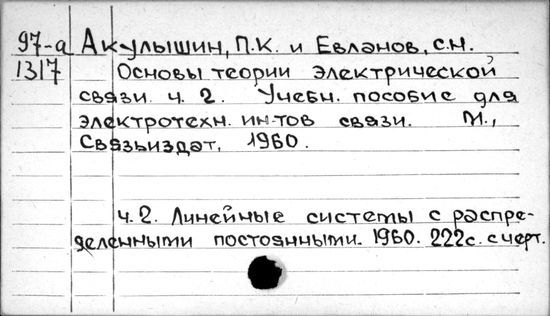 97-а Акулышин, П.К. и Евланов, С.Н.
1317 Основы теории электрической
связи. ч. 2. Учебн. пособие для
электротехн. ин-тов связи. М.,
Связьиздат, 1960.
ч. 2. Линейные системы с распре-
деленными постоянными. 1960. 222с. с черт.